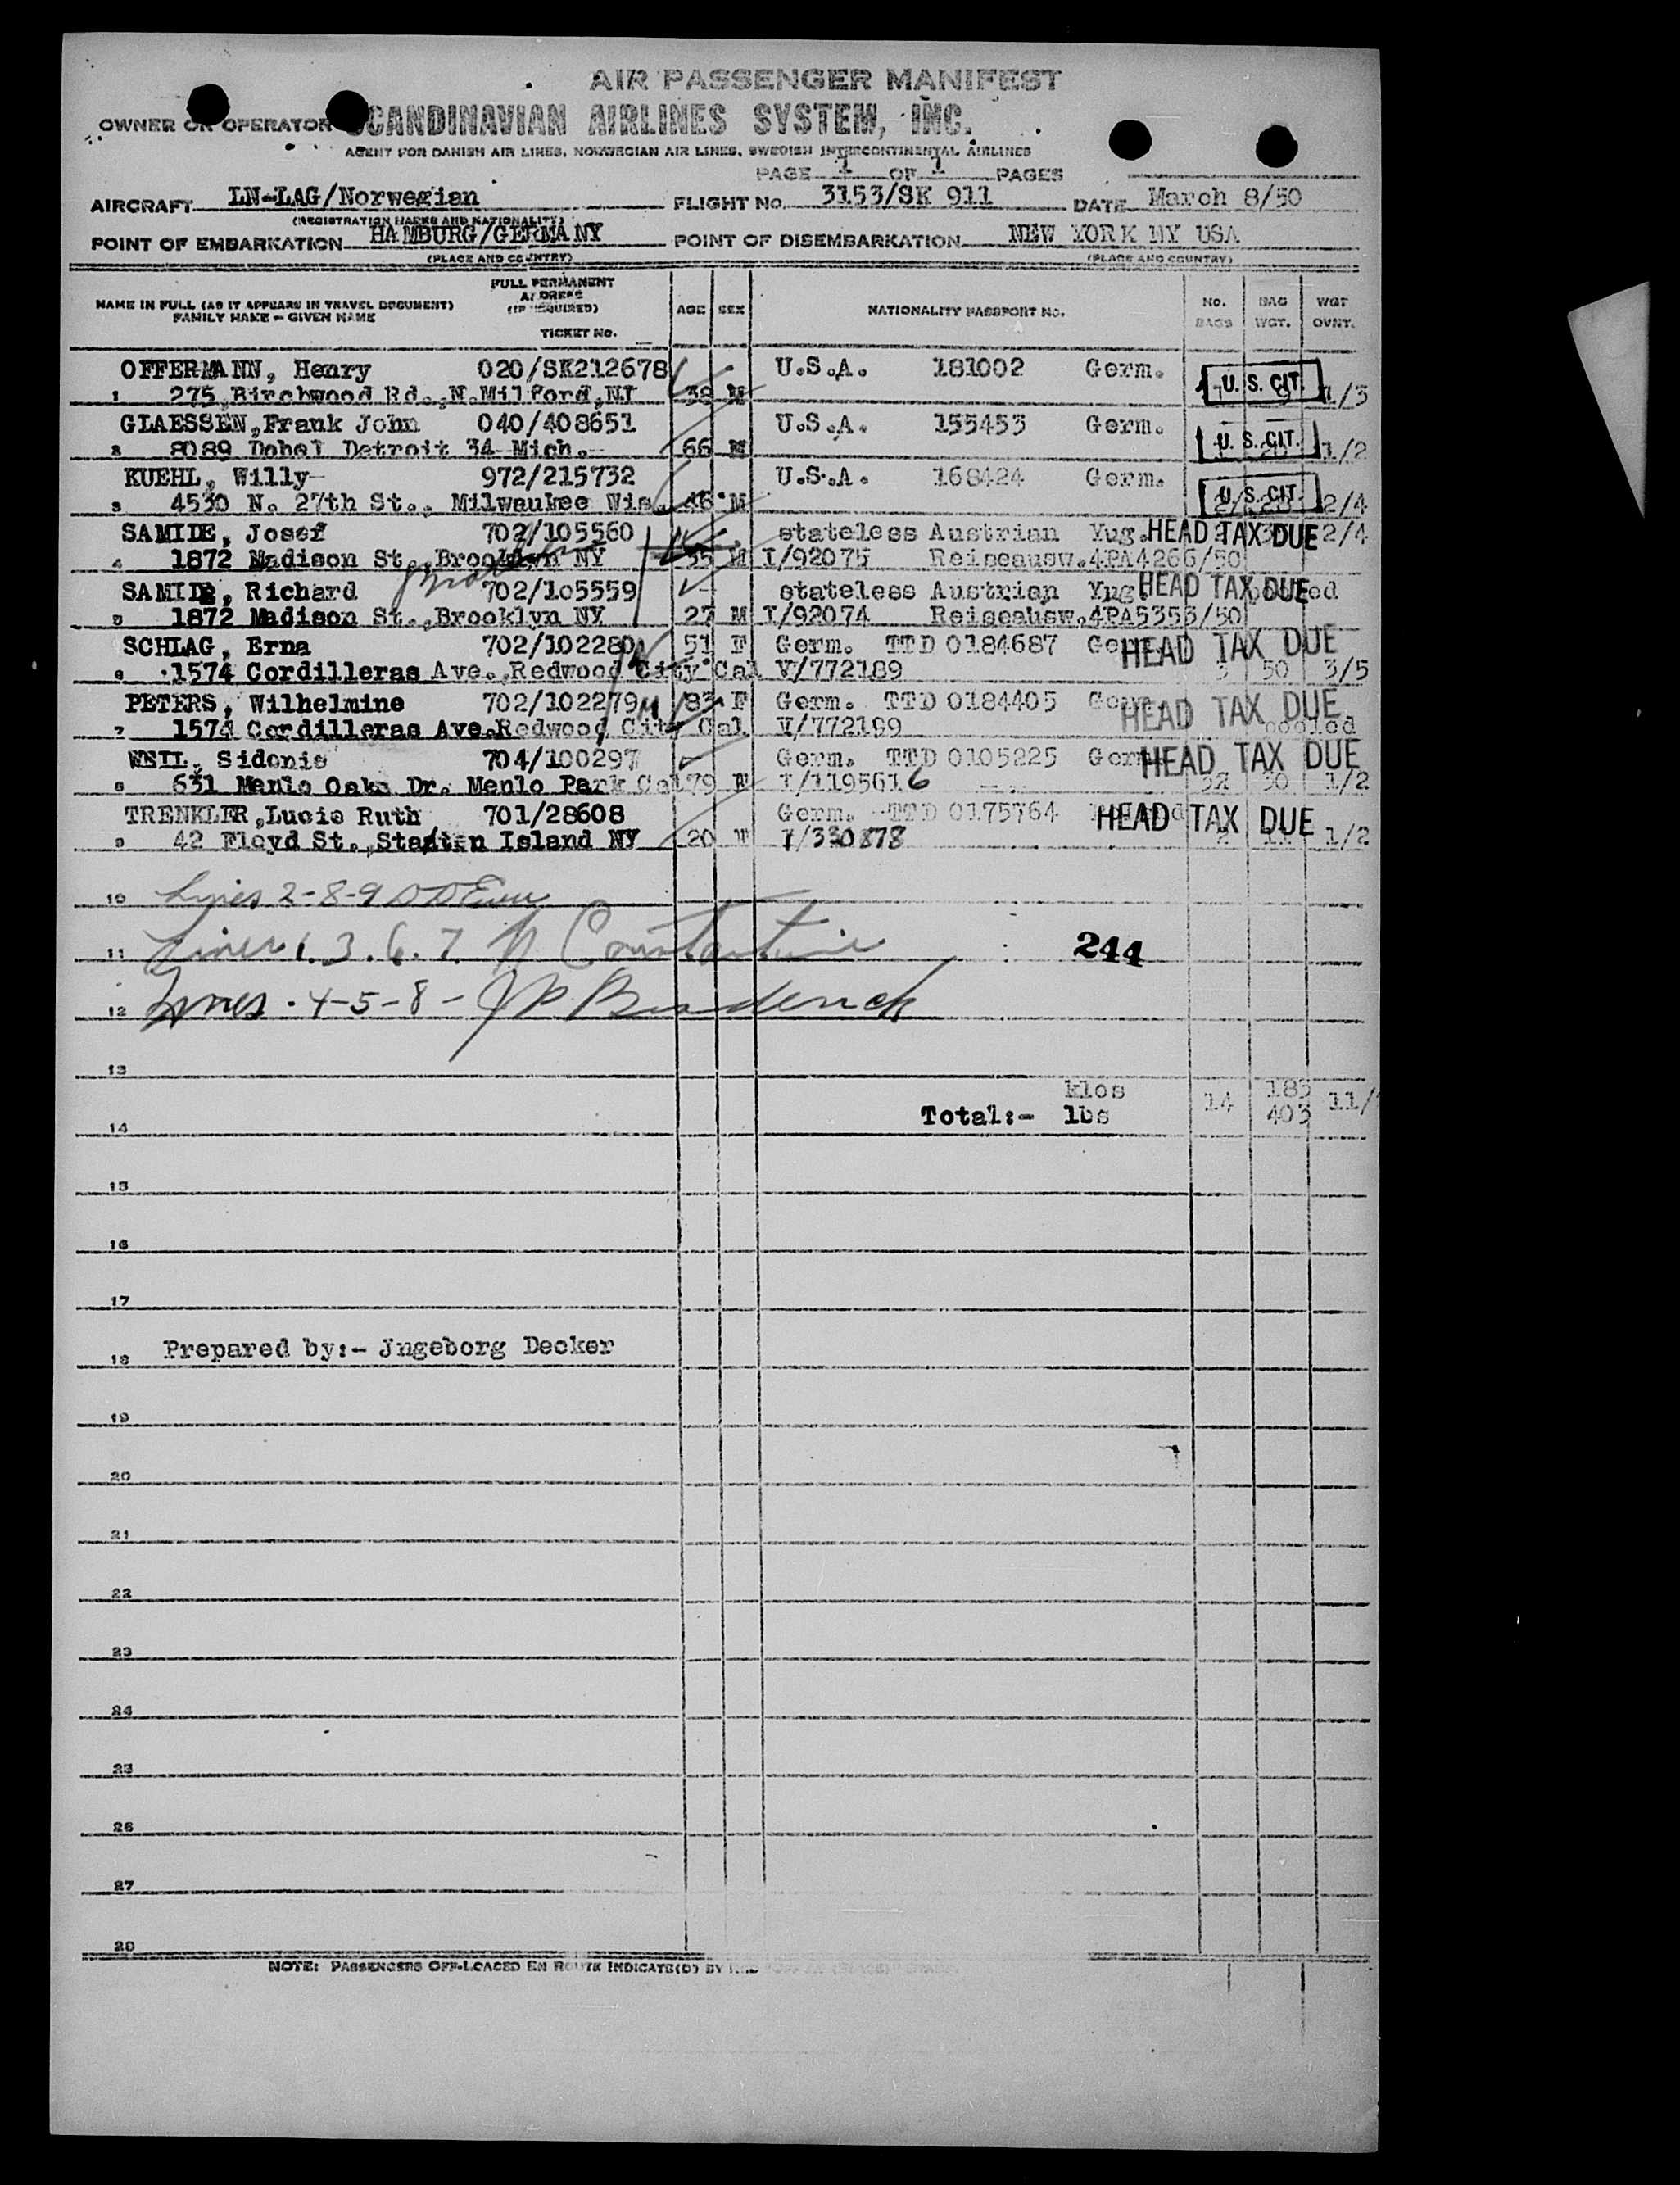 AIR PASSENGER MANIFEST
OWNER OR OPERATOR SCANDINAVIAN AIRLINES SYSTEM, INC.
AGENT FOR DANISH AIR LINES, NORWEGIAN AIR LINES, SWEDISH INTERCONTINENTAL AIRLINES
PAGE 1 OF 1 PAGES
AIRCRAFT LN-LAG/Norwegian FLIGHT No. 3153/SK 911 DATE March 8/50
(REGISTRATION MARKS AND NATIONALITY)
POINT OF EMBARKATION HAMBURG/GERMANY POINT OF DISEMBARKATION NEW YORK NY USA
(PLACE AND COUNTRY) (PLACE AND COUNTRY)
NAME IN FULL (AS IT APPEARS IN TRAVEL DOCUMENT) FAMILY NAME - GIVEN NAME FULL PERMANENT ADDRESS (IF REQUIRED) TICKET No. AGE SEX NATIONALITY PASSPORT NO. No. BAGS BAG WGT. WGT OVNT.
OFFERMANN, Henry 020/SK212678 U.S.A. 181002 Germ. U. S. CIT.
1 275 Birchwood Rd., N.Milford, NJ 38 M 1/3
GLAESSEN, Frank John 040/408651 U.S.A. 155453 Germ. U. S. CIT.
2 8089 Dobel Detroit 34 Mich. 66 M 1/2
KUEHL, Willy 972/215732 U.S.A. 168424 Germ. U. S. CIT.
3 4530 N. 27th St., Milwaukee Wis. 46 M 2/4
SAMIDE, Josef 702/105560 stateless Austrian Yug. HEAD TAX DUE 2/4
4 1872 Madison St., Brooklyn NY 55 M I/92075 Reiseausw.4PA4266/50
SAMIDE, Richard 702/105559 stateless Austrian Yug HEAD TAX DUE
5 1872 Madison St., Brooklyn NY 27 M I/92074 Reiseausw.4PA5353/50
SCHLAG, Erna 702/102280 51 F Germ. TTD 0184687 HEAD TAX DUE
6 1574 Cordilleras Ave., Redwood City Cal V/772189 3 50 3/5
PETERS, Wilhelmine 702/102279 83 F Germ. TTD 0184405 HEAD TAX DUE
7 1574 Cordilleras Ave. Redwood City Cal V/772199 pooled
WEIL, Sidonie 704/100297 Germ. TTD 0105225 Germ. HEAD TAX DUE
8 631 Menlo Oaks Dr. Menlo Park Cal 79 F I/1195616 30 1/2
TRENKLER, Lucie Ruth 701/28608 Germ. TTD 0175764 HEAD TAX DUE
9 42 Floyd St., Staten Island NY 20 F I/330878 1/2
10 Lines 2-8-9
11 Lines 1. 3. 6. 7. N Constantine 244
12 Lines. 4-5-8- JP Broderick
13
klos 14 183 11/
14 Total:- lbs 403
15
16
17
18 Prepared by:- Jngeborg Decker
19
20
21
22
23
24
25
26
27
28
NOTE: PASSENGERS OFF-LOADED EN ROUTE INDICATE(D) BY